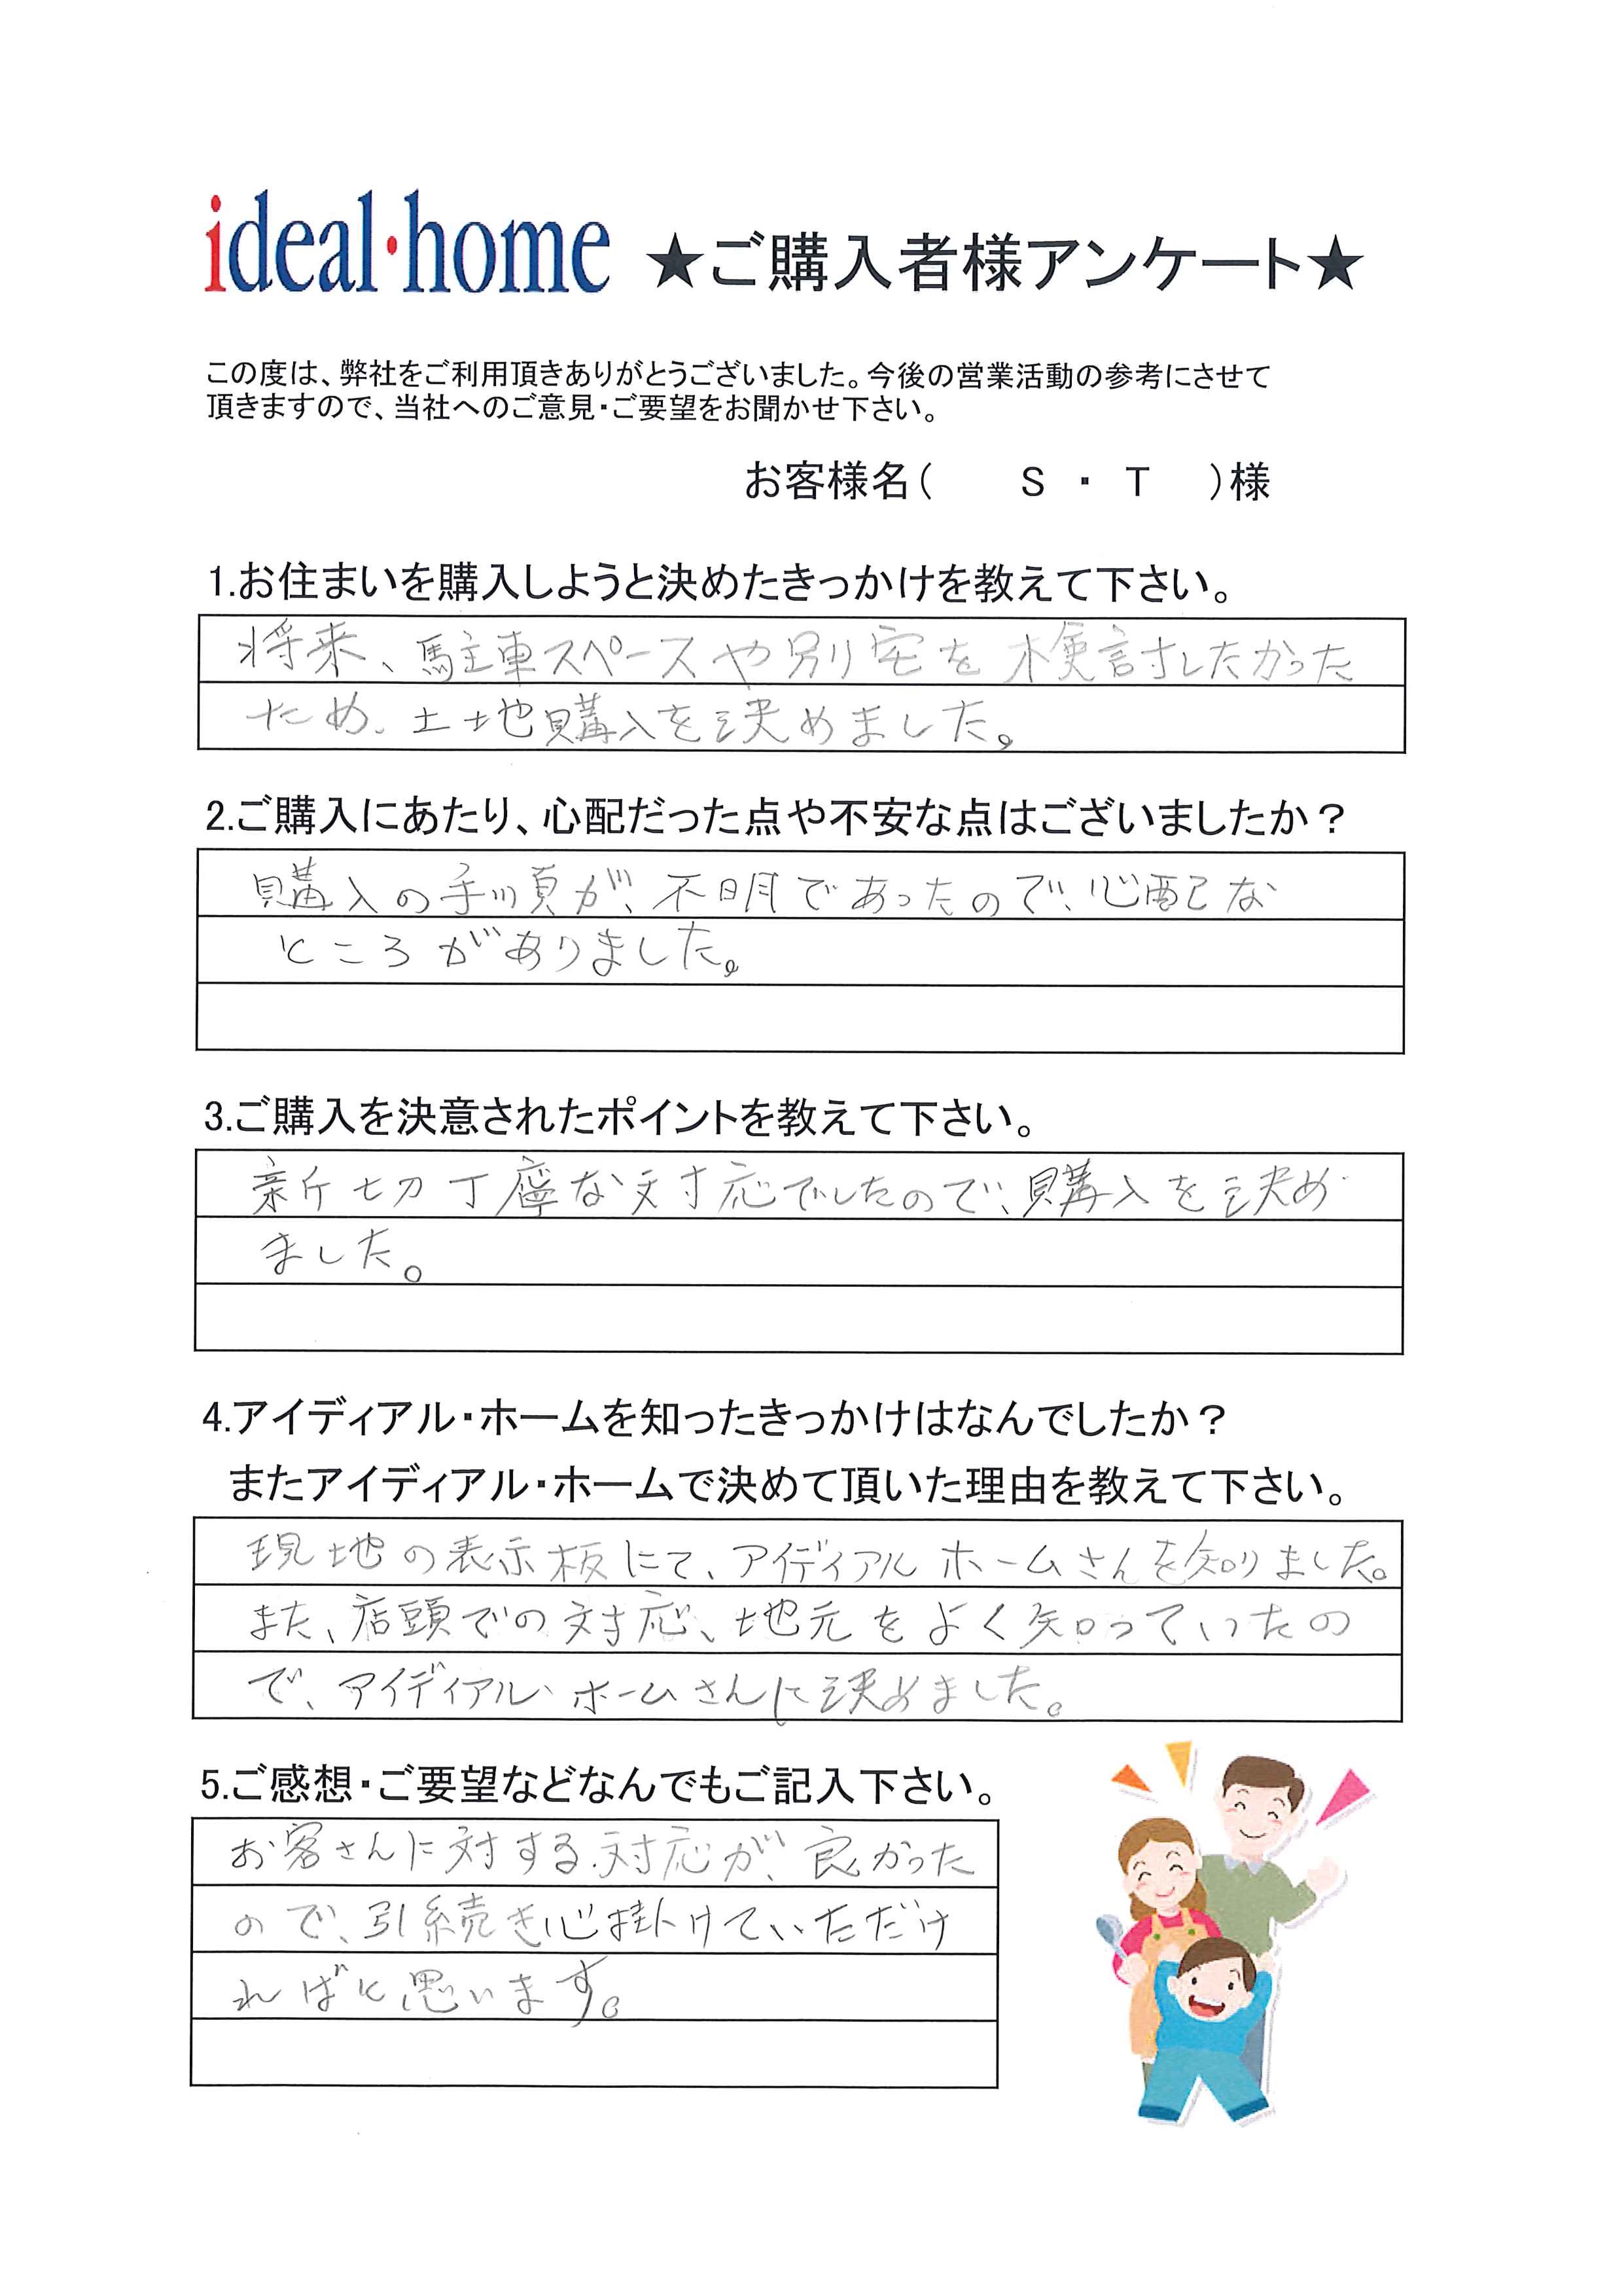 ideal・home ★ご購入者様アンケート★
この度は、弊社をご利用頂きありがとうございました。今後の営業活動の参考にさせて
頂きますので、当社へのご意見・ご要望をお聞かせ下さい。
お客様名( S ・ T )様
1.お住まいを購入しようと決めたきっかけを教えて下さい。
将来、駐車スペースや別宅を検討したかった
ため、土地購入を決めました。
2.ご購入にあたり、心配だった点や不安な点はございましたか？
購入の手順が、不明であったので、心配な
ところがありました。
3.ご購入を決意されたポイントを教えて下さい。
親切丁寧な対応でしたので、購入を決め
ました。
4.アイディアル・ホームを知ったきっかけはなんでしたか？
またアイディアル・ホームで決めて頂いた理由を教えて下さい。
現地の表示板にて、アイディアルホームさんを知りました。
また、店頭での対応、地元をよく知っていたの
で、アイディアル・ホームさんに決めました。
5.ご感想・ご要望などなんでもご記入下さい。
お客さんに対する対応が、良かった
ので、引続き心掛けていただけ
ればと思います。